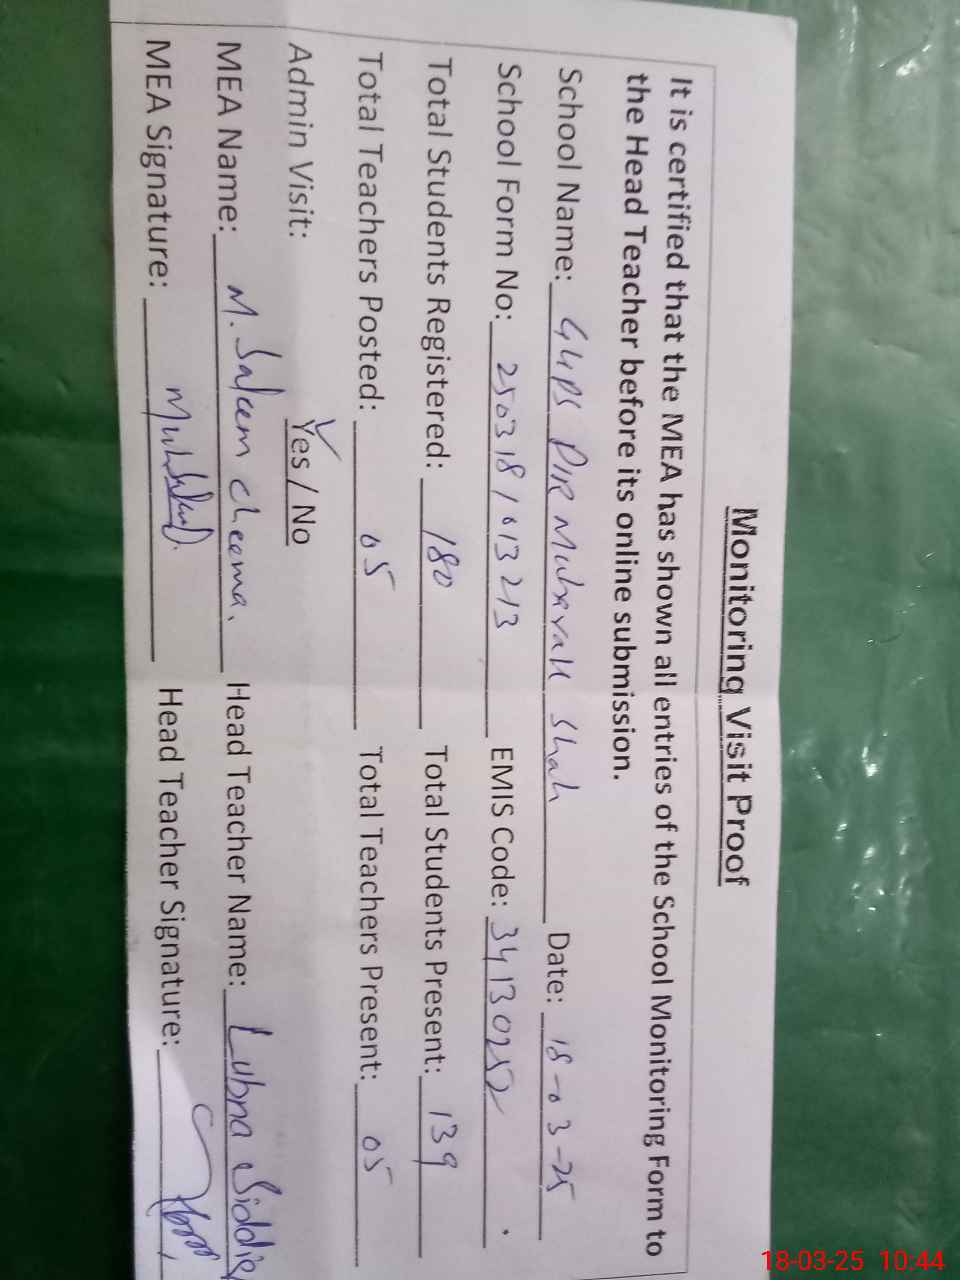 Monitoring Visit Proof
It is certified that the MEA has shown all entries of the School Monitoring Form to
the Head Teacher before its online submission.
School Name: GHPS PIR Mubarak Shah Date: 18-03-25
School Form No: 250318/013213 EMIS Code: 34130252
Total Students Registered: 180 Total Students Present: 139
Total Teachers Posted: 05 Total Teachers Present: 05
Admin Visit: Yes / No
MEA Name: M. Saleem cheema. Head Teacher Name: Lubna
MEA Signature: Head Teacher Signature:
18-03-25 10:44